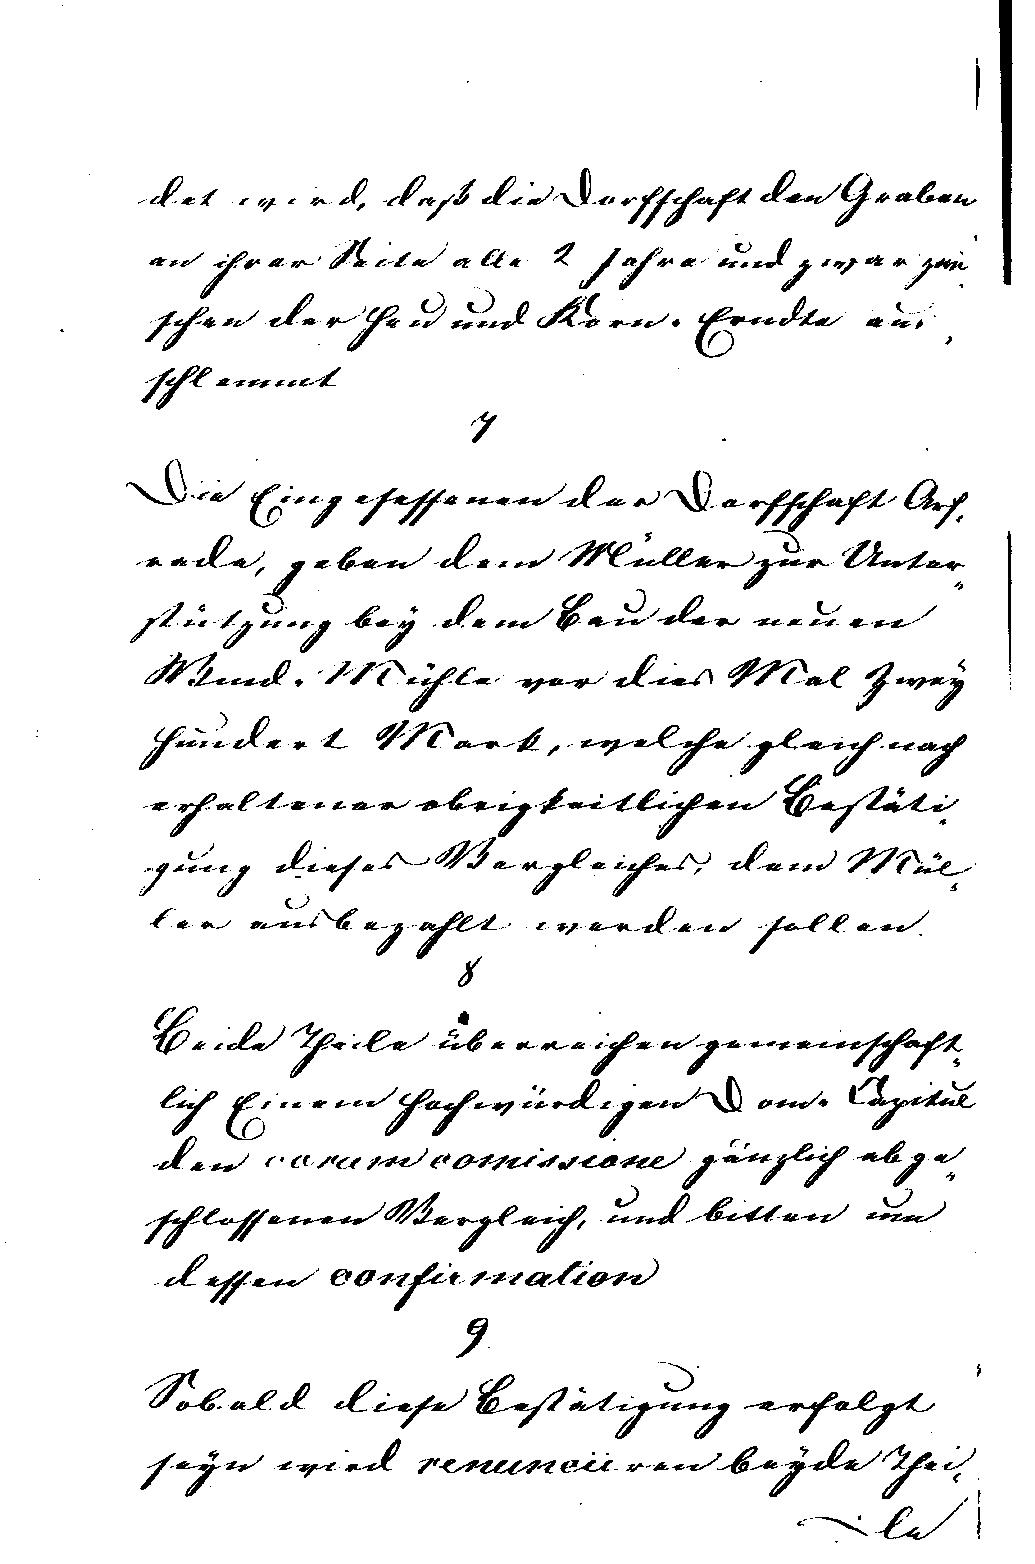 det wird, daß die Dorfschaft den Graben
an ihrer Seite alle 2 Jahre und zwar zwi
schen der Heu und Korn-Erndte aus-
schlemmt
7
Die Eingesessenen der Dorfschaft Arf-
rade, geben dem Müller zur Unter-
stützung bey dem Bau der neuen
Wind-Mühle vor dies Mal Zwey
hundert Mark, welche gleich nach
erhaltener obrigkeitlichen Bestäti-
gung dieses Vergleiches, dem Mül-
ler ausbezahlt werden sollen.
8
Beide Theile überreichen gemeinschaft-
lich Einem Hochwürdigen Dom-Capitul
den coram comissione gänzlich abge-
schlossenen Vergleich, und bitten um
dessen confirmation
9
Sobald diese Bestätigung erfolgt
seyn wird renunciiren beyde Thei-
le